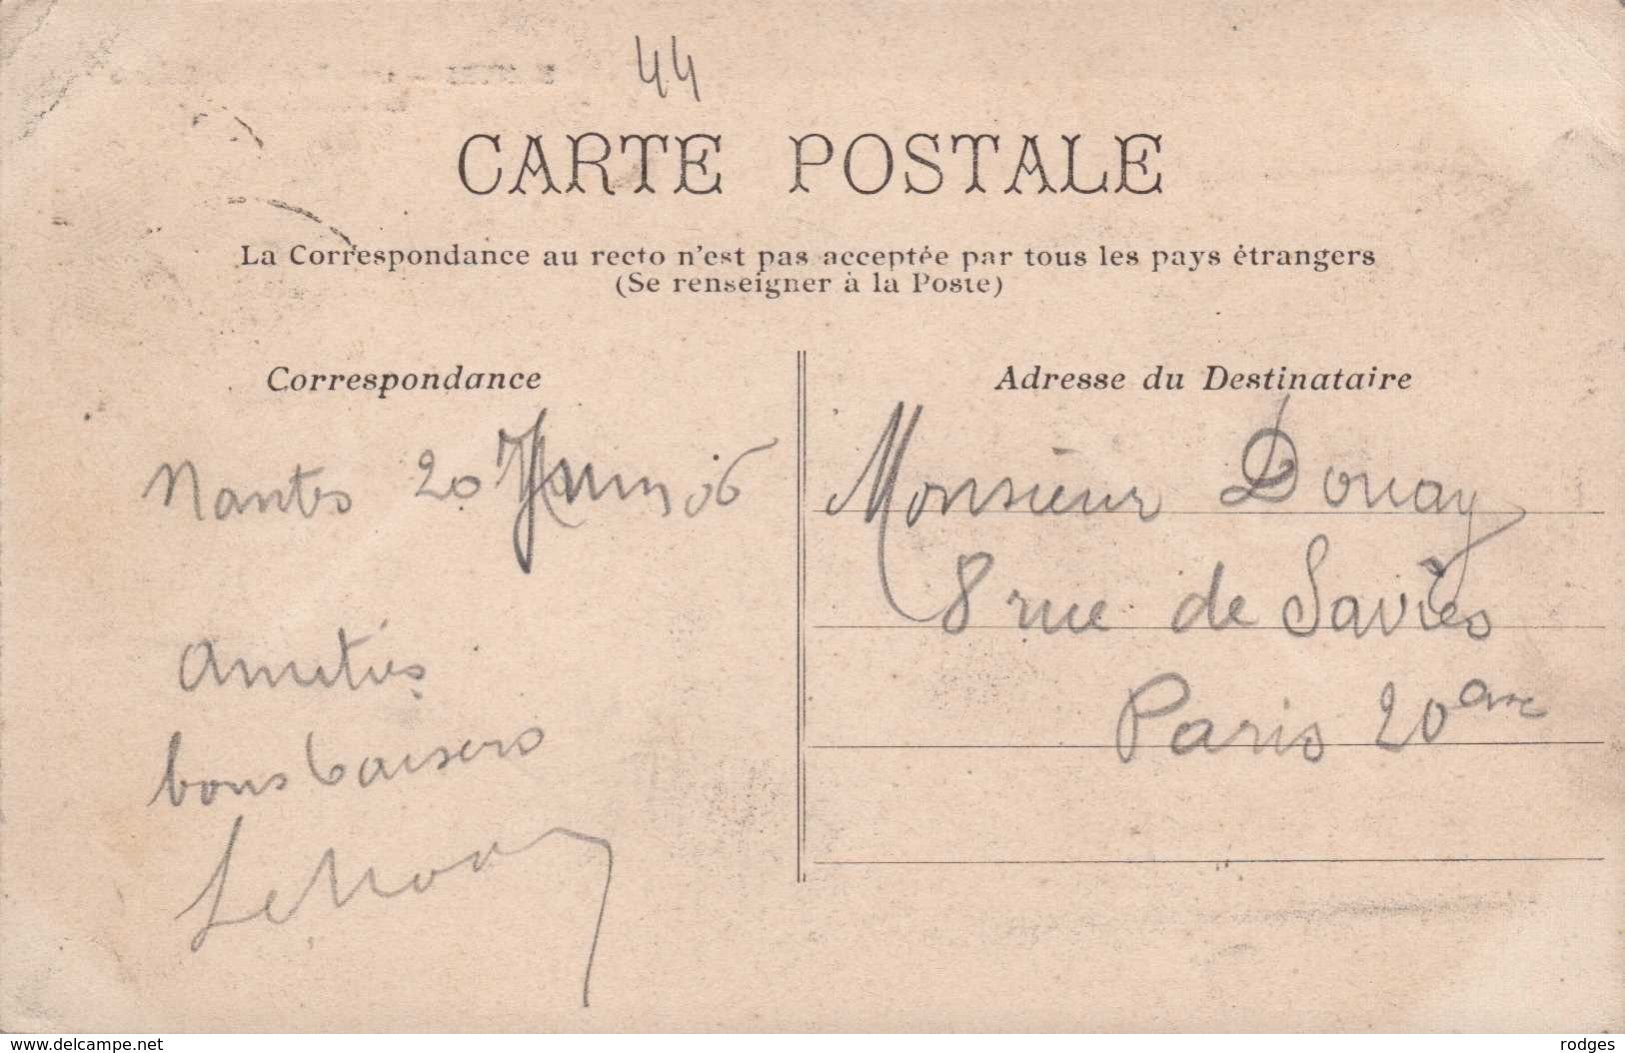 44
CARTE POSTALE
La Correspondance au recto n'est pas acceptée par tous les pays étrangers
(Se renseigner à la Poste)
Correspondance
Nantes 20 Juin 06
Amitiés
bons baisers
Adresse du Destinataire
Monsieur Douay
8 rue de Savies
Paris 20
www.delcampe.net
rodges